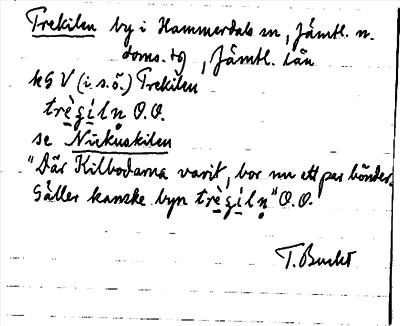 Trekilen by i Hammerdals sn, Jämtl. n.
doms. tg, Jämtl. län
kG V (i.s.ö.) Trekilen
trègíln̥ O.O.
se Nickuskilen
"Där Kilbodarna varit, bor nu ett par bönder.
Gäller kanske byn trègíln̥" O.O.
T. Bucht